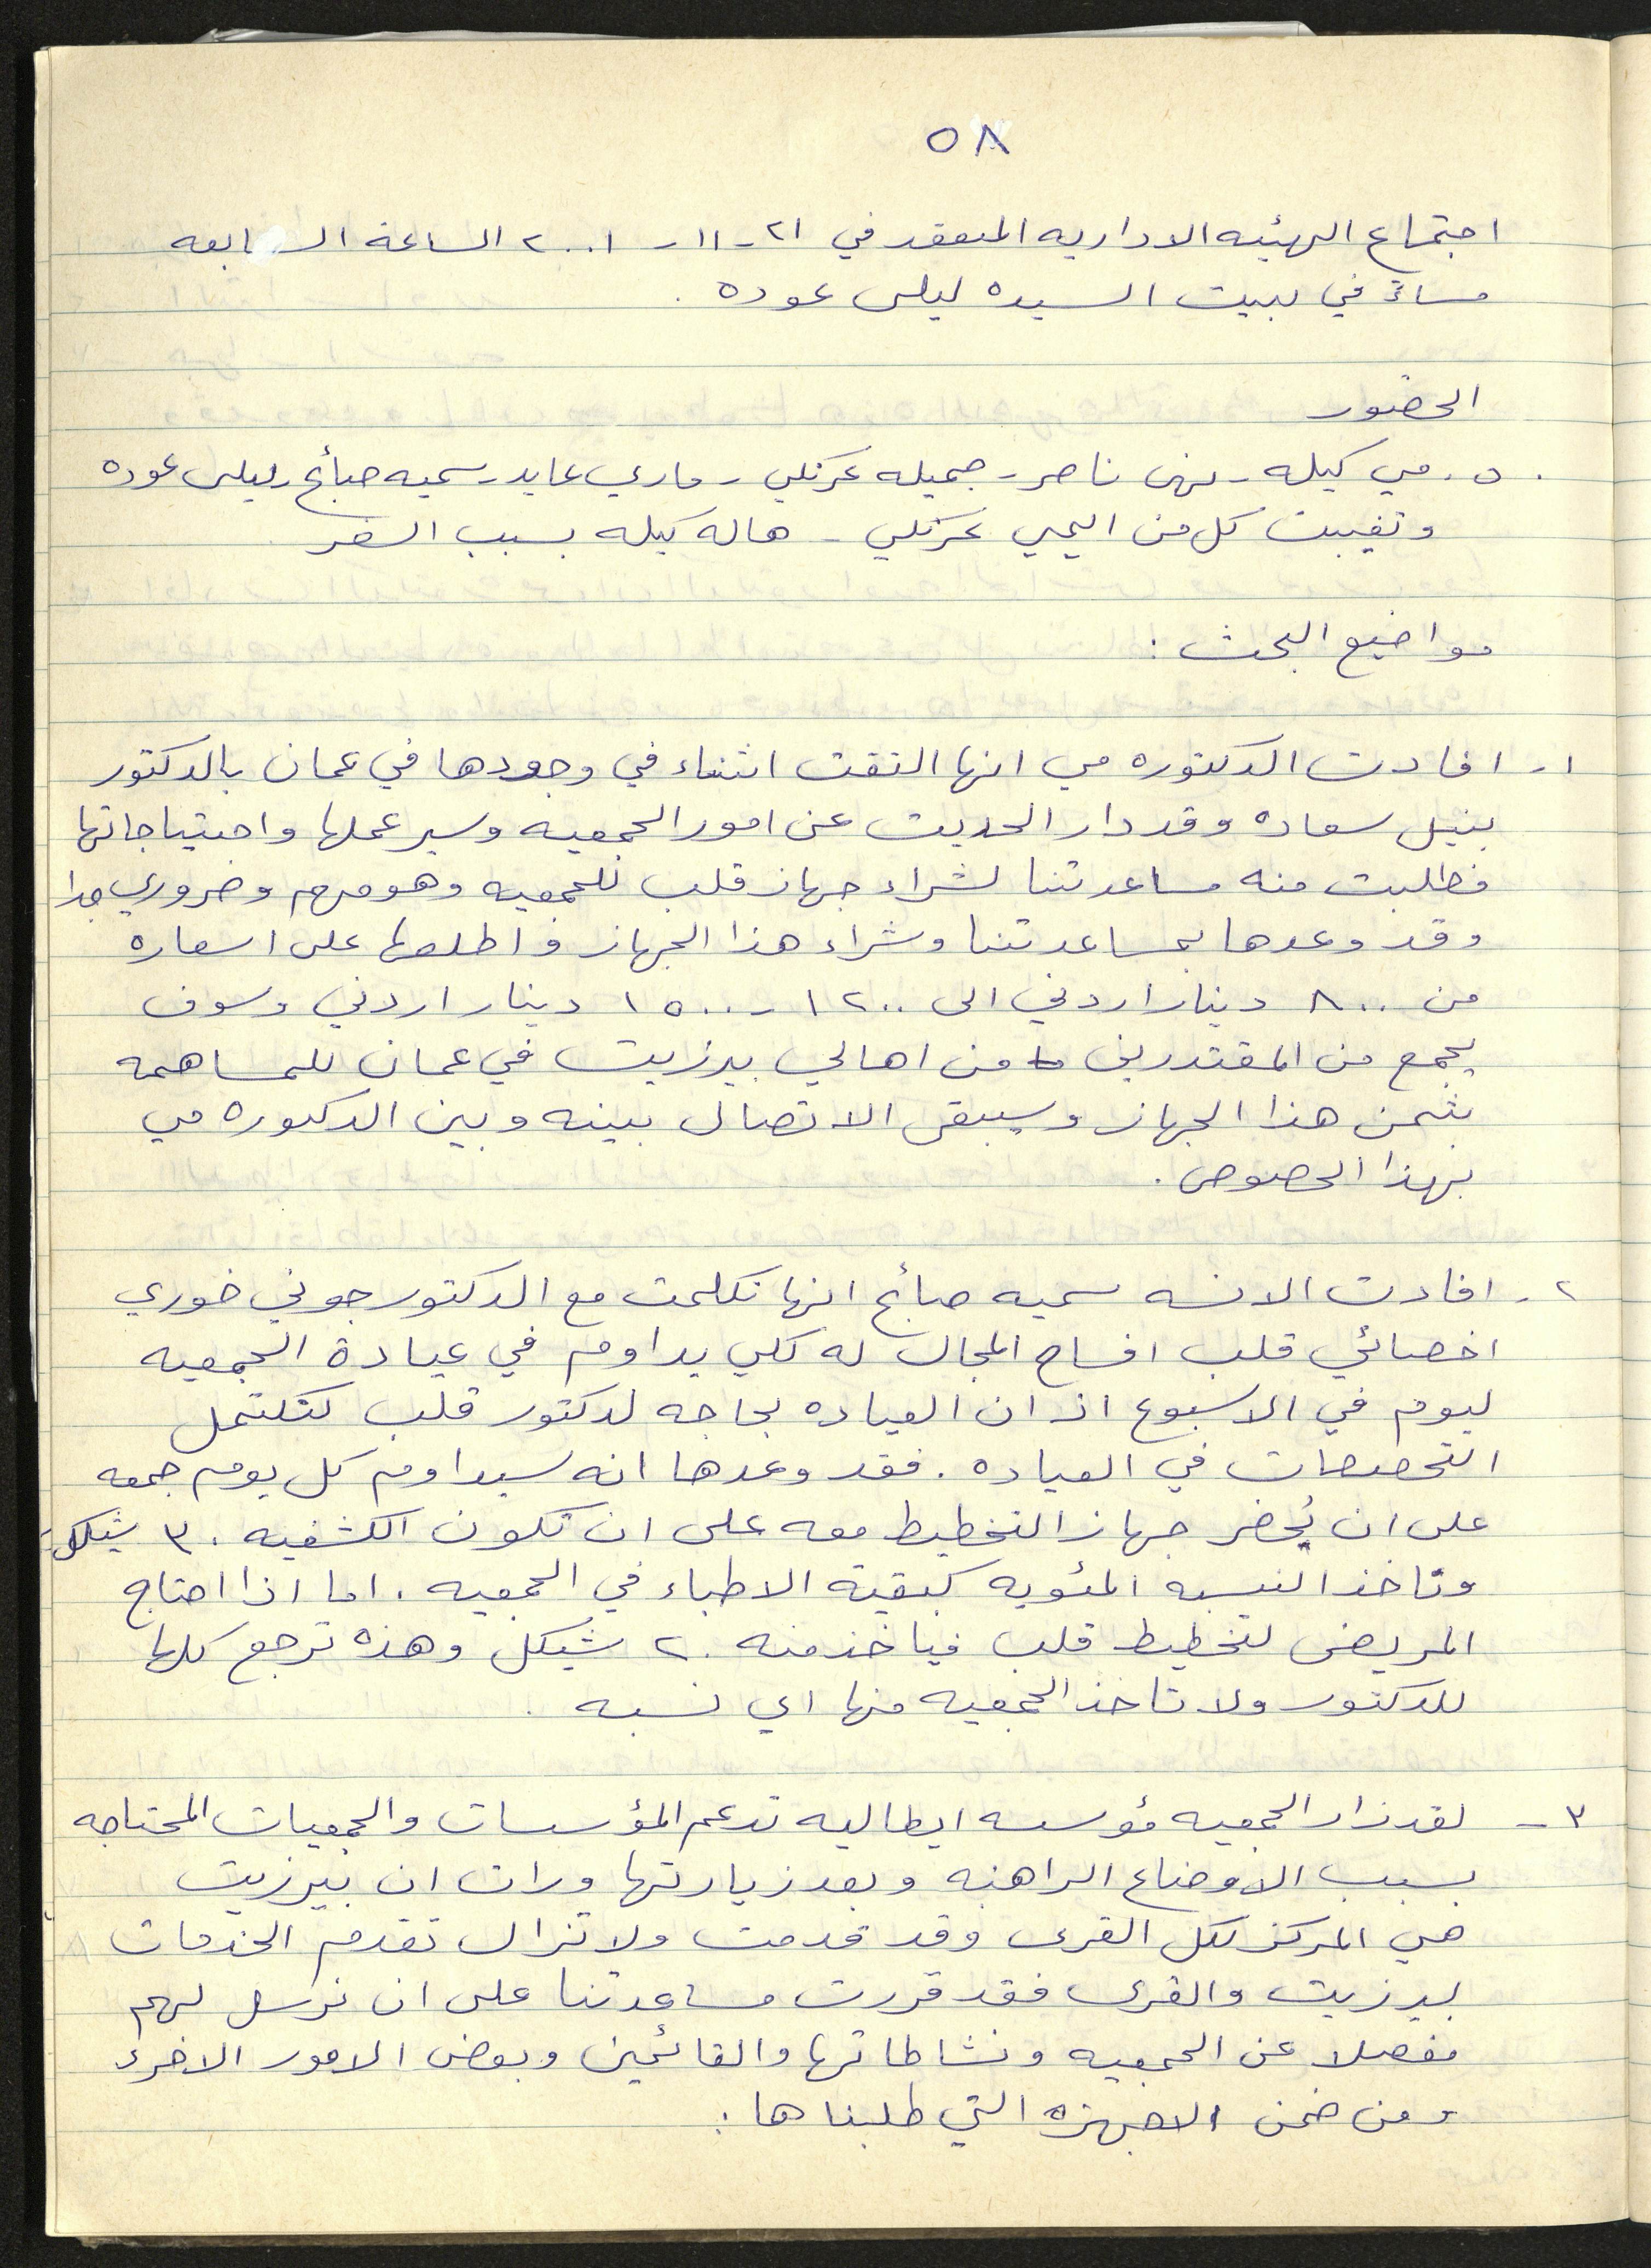 ٥٨
اجتماع الهيئيه الاداريه المنعقد في ٢١-١١-٢٠٠١ الساعة الرابعه
مساءً في بيت السيده ليلى عوده .
الحضور
د. مي كيله - نهى ناصر - جميله عرنكي - ماري عابد - سميه صائغ - ليلى عوده
وتغيبت كل من اليمي عرنكي - هاله كيله بسبب السفر
مواضيع البحث :
١- افادت الدكتوره مي انها التقت اثناء في وجودها في عمان بالدكتور
نبيل سعاده وقد دار الحديث عن امور الجمعيه وسير عملها واحتياجاتها
فطلبت منه مساعدتنا لشراء جهاز قلب للجمعيه وهو مهم وضروري جدا
وقد وعدها بمساعدتنا وشراء هذا الجهاز واطلعها على اسعاره
من ٨٠٠ دينار اردني الى ١٢٠٠ - ١٥٠٠ دينار اردني وسوف
يجمع من المقتدرين من اهالي بيرزيت في عمان للمساهمه
بثمن هذا الجهاز وسيبقى الاتصال بينه وبين الدكتوره مي
بهذا الخصوص .
٢- افادت الانسه سميه صائغ انها تكلمت مع الدكتور جوني خوري
اخصائي قلب افساح المجال له لكي يداوم في عيادة الجمعيه
ليوم في الاسبوع اذ ان العياده بحاجه لدكتور قلب لتكتمل
التخصصات في العياده . فقد وعدها انه سيداوم كل يوم جمعه
على ان يُحضر جهاز التخطيط معه على ان تكون الكشفيه ٣٠ شيكل
وتاخذ النسبه المئويه كبقية الاطباء في الجمعيه . اما اذا احتاج
المريض لتخطيط قلب فياخذ منه ٢٠ شيكل وهذه ترجع كلها
للدكتور ولا تاخذ الجمعيه منها اي نسبه .
٣- لقد زار الجمعيه مؤسسه ايطاليه تدعم المؤسسات والجمعيات المحتاجه
بسبب الاوضاع الراهنه وبعد زيارتها ورات ان بيرزيت
هي المركز لكل القرى وقد قدمت ولا تزال تقدم الخدمات
لبيرزيت والقرى فقد قررت مساعدتنا على ان نرسل لهم
مفصلا عن الجمعيه ونشاطاتها والقائمين وبعض الامور الاخرى
ومن ضمن الاجهزه التي طلبناها :